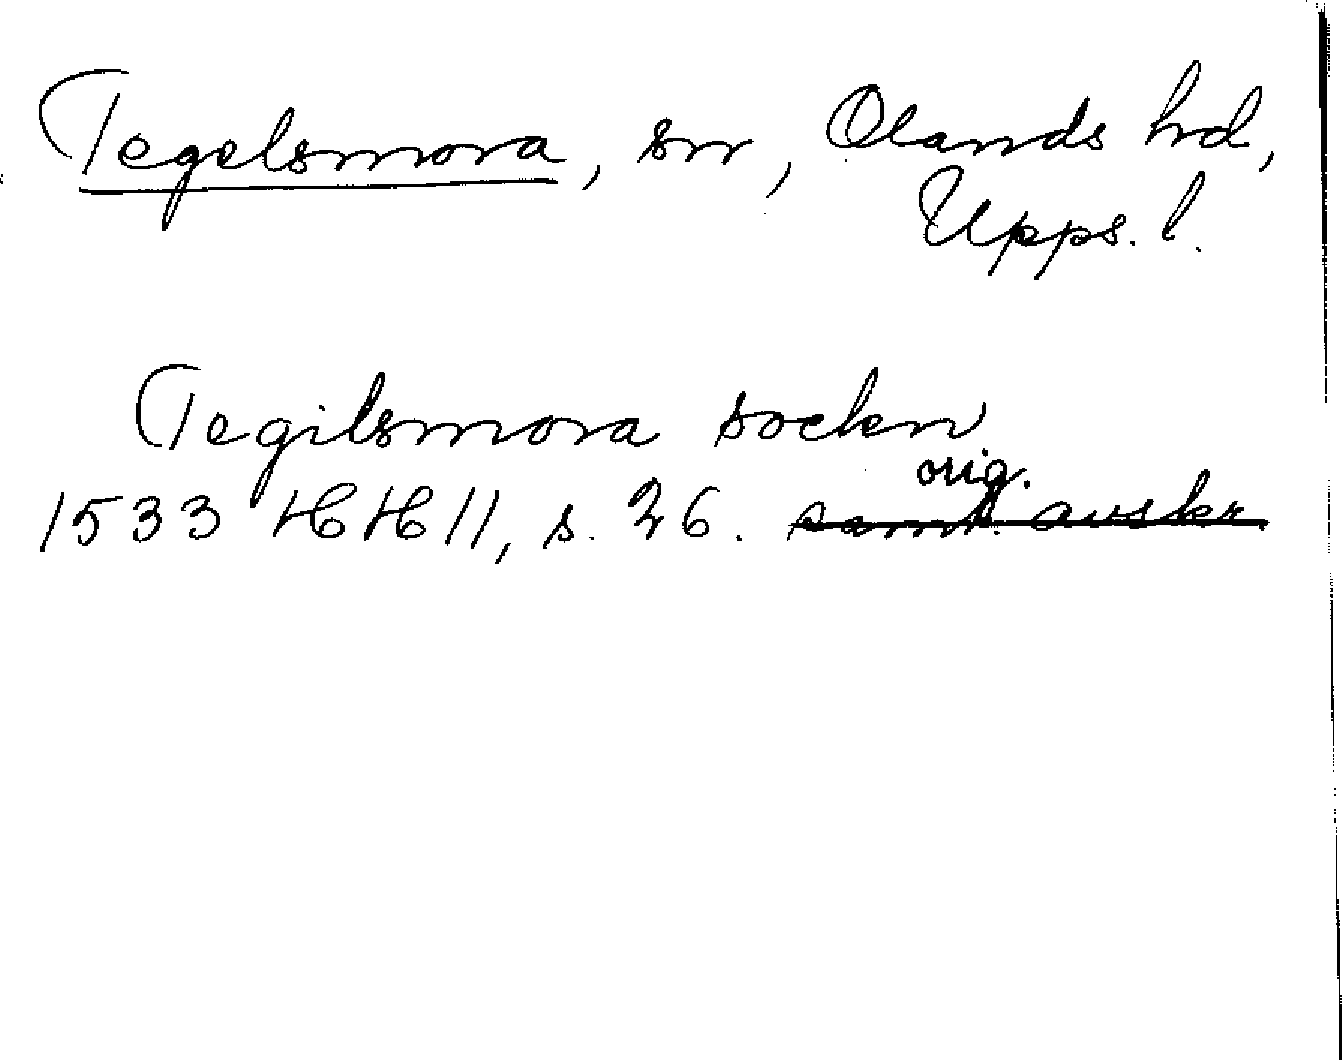 Tegelsmora, sn, Olands hd,
Upps. l.
Tegilsmora sockn
orig.
1533 HH 11, s. 26. samt. avskr.